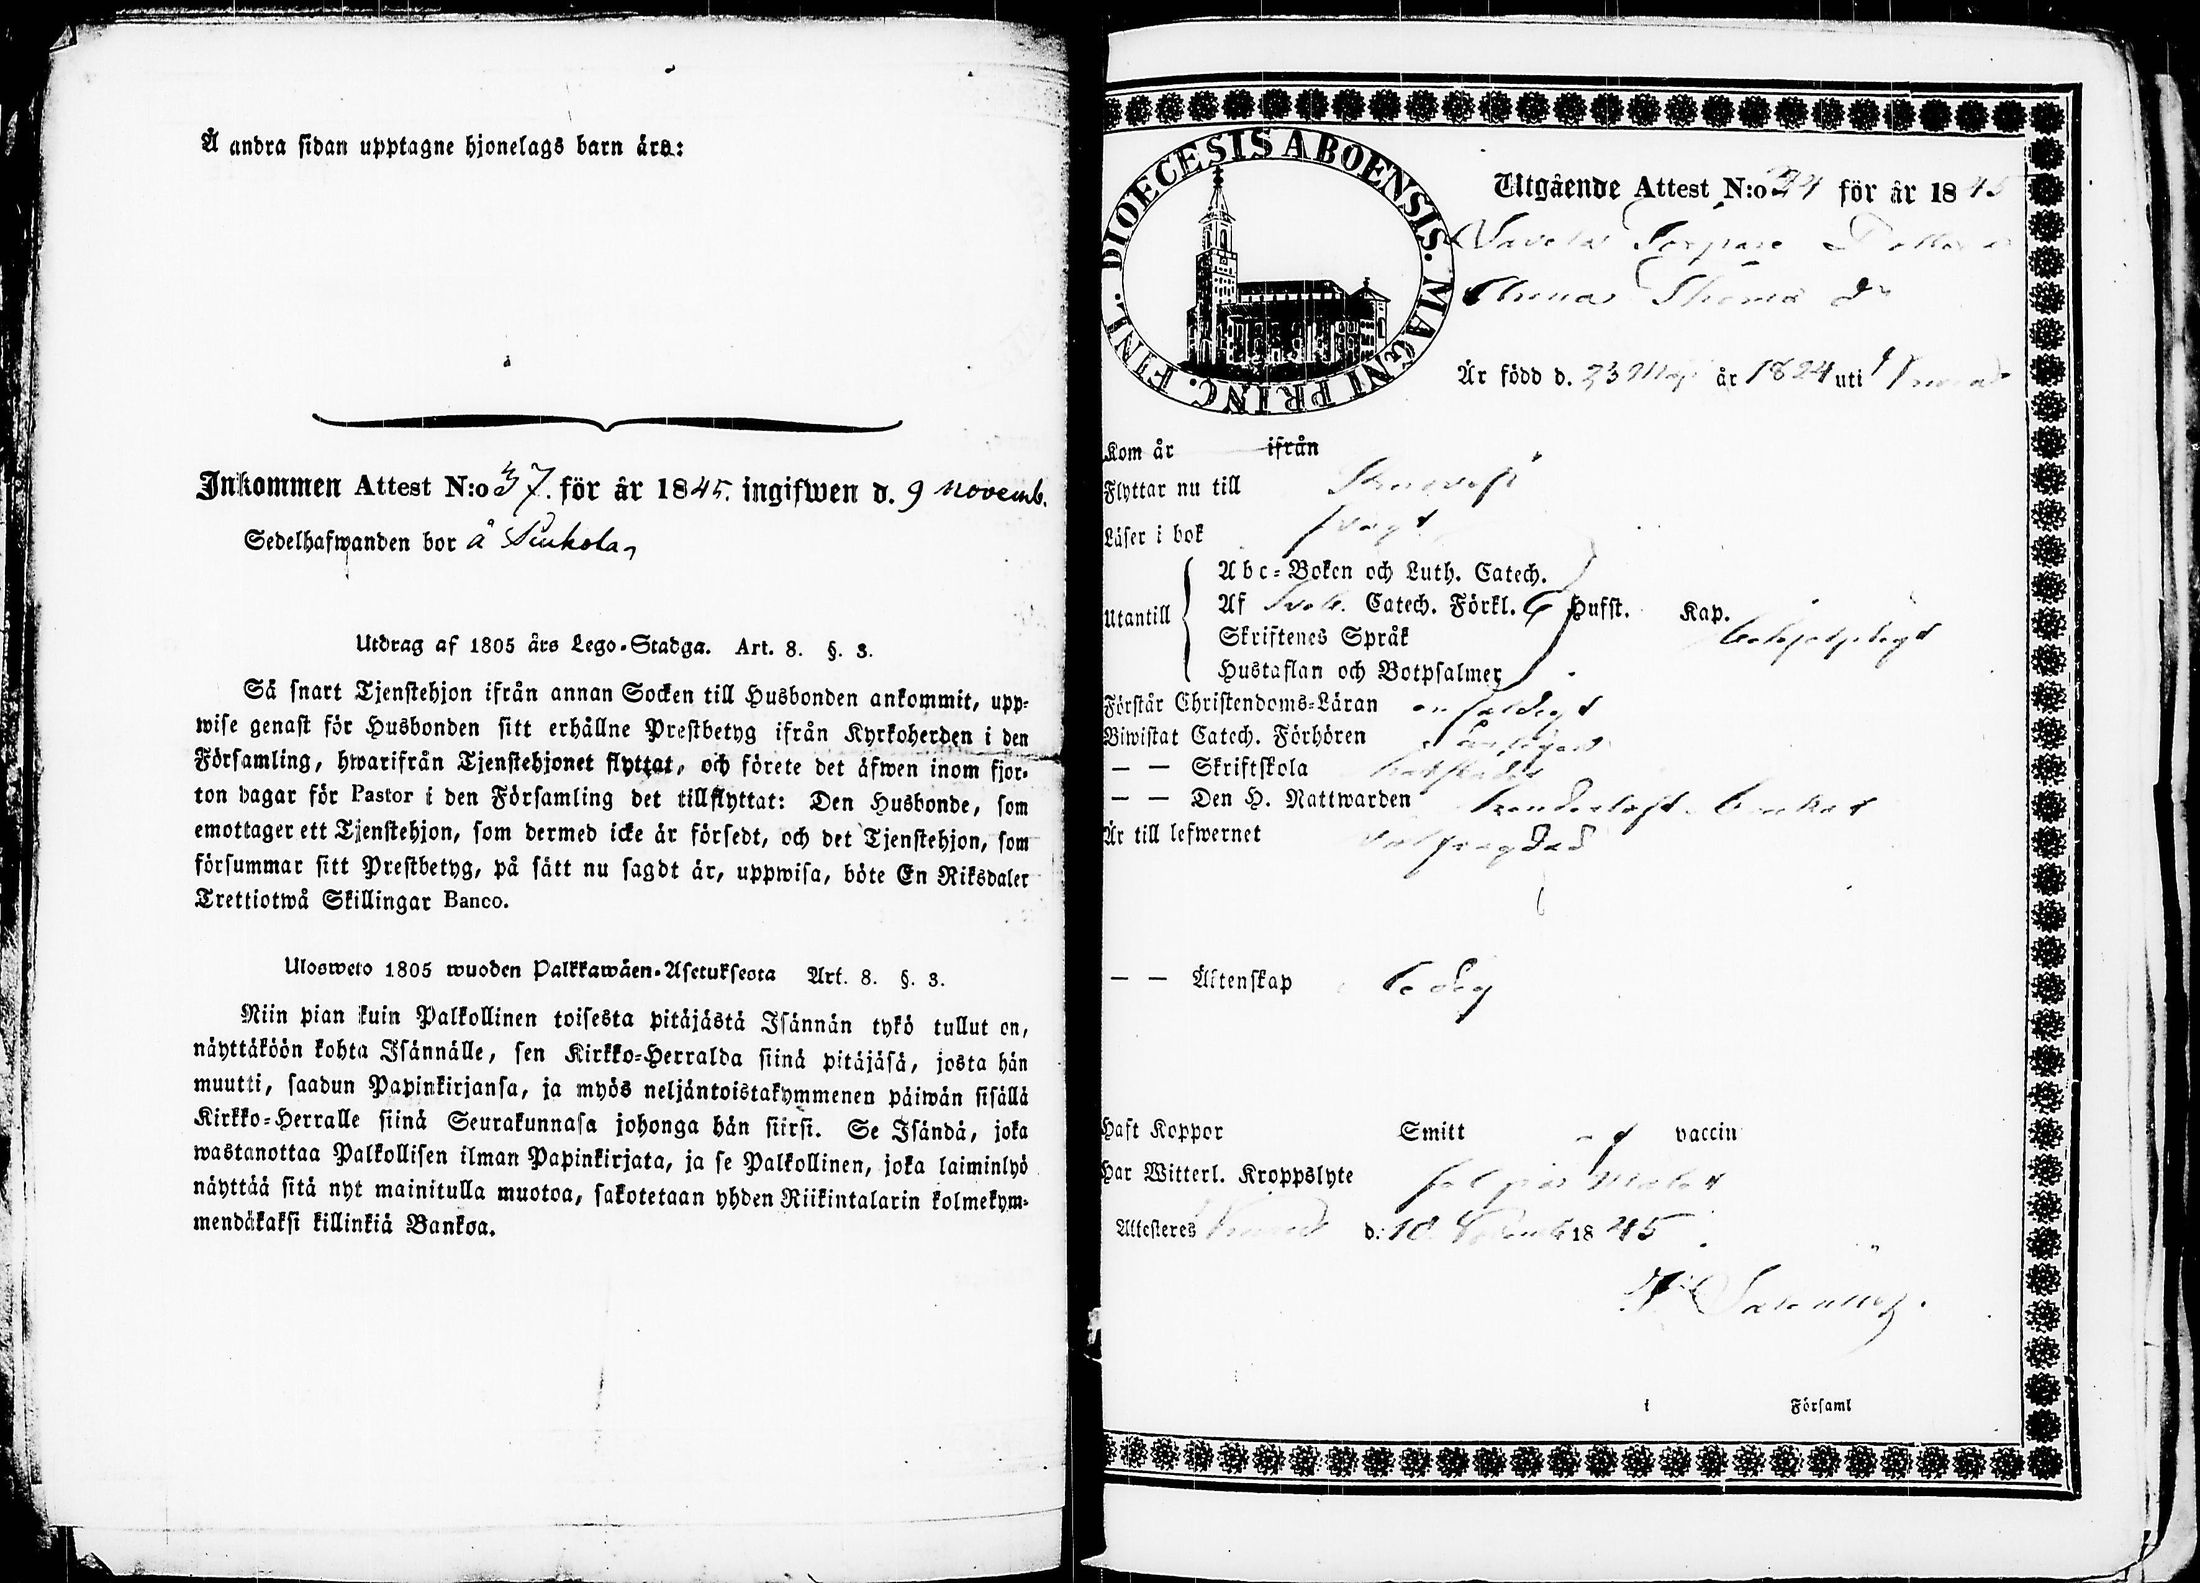 Å andra sidan upptagne hjonelags barn äro:
Inkommen Attest N:o 37. för år 1845. ingifwen d. 9 novemb.
Sedelhafwanden bor å
Utdrag af 1805 års Lego-Stadga. Art. 8. §. 3.
Så snart Tjenstehjon ifrån annan Socken till Husbonden ankommit, upp-
wise genast för Husbonden sitt erhållne Prestbetyg ifrån Kyrkoherden i den
Församling, hwarifrån Tjenstehjonet flyttat, och förete det äfwen inom fjor-
ton dagar för Pastor i den Församling det tillflyttat: Den Husbonde, som
emottager ett Tjenstehjon, som dermed icke är försedt, och det Tjenstehjon, som
försummar sitt Prestbetyg, på sätt nu sagdt är, uppwisa, böte En Riksdaler
Trettiotwå Skillingar Banco.
Ulosweto 1805 wuoden Palkkawäen-Asetuksesta Art. 8. §. 3.
Niin pian kuin Palkollinen toisesta pitäjästä Isännän tykö tullut on,
näyttäköön kohta Isännälle, sen Kirkko-Herralda siinä pitäjäsä, josta hän
muutti, saadun Papinkirjansa, ja myös neljäntoistakymmenen päiwän sisällä
Kirkko-Herralle siinä Seurakunnasa johonga hän siirsi. Se Isändä, joka
wastanottaa Palkollisen ilman Papinkirjata, ja se Palkollinen, joka laiminlyö
näyttää sitä nyt mainitulla muotoa, sakotetaan yhden Riikintalarin kolmekym-
mendäkaksi killinkiä Bankoa.
DIOECESIS ABOENSIS. MAGNI PRINC. FINL.
Utgående Attest N:o 24 för år 1845
Är född d. 23 Maji år 1824 uti
Kom år ifrån
Flyttar nu till
Läser i bok svagt
Utantill
Abc-Boken och Luth. Catech.
Af Catech. Förkl. 6 Hufst. Kap.
Skriftenes Språk
Hustaflan och Botpsalmer
Förstår Christendoms-Läran enfaldigt
Biwistat Catech. Förhören
— — Skriftskola
— — Den H. Nattwarden
Är till lefwernet välfrägdad
— — Äktenskap ledig
Haft Koppor Smitt vaccin
Har Witterl. Kroppslyte
Attesteres d. 10 1845
i Församl